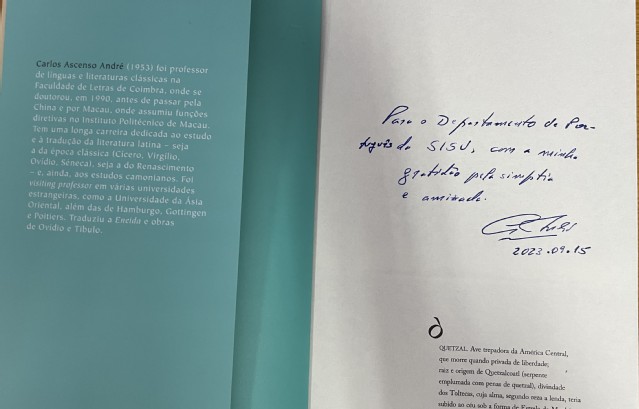 Carlos Ascenso André (1953) foi professor
de línguas e literaturas clássicas na
Faculdade de Letras de Coimbra, onde se
doutorou, em 1990, antes de passar pela
China e por Macau, onde assumiu funções
diretivas no Instituto Politécnico de Macau.
Tem uma longa carreira dedicada ao estudo
e à tradução da literatura latina – seja
a da época clássica (Cícero, Virgílio,
Ovídio, Séneca), seja a do Renascimento
– e, ainda, aos estudos camonianos. Foi
visiting professor em várias universidades
estrangeiras, como a Universidade da Ásia
Oriental, além das de Hamburgo, Gottingen
e Poitiers. Traduziu a Eneida e obras
de Ovídio e Tibulo.
Para o Departamento de Por-
tuguês da SISU, com a minha
gratidão pela simpatia
e amizade.
2023.09.15
QUETZAL. Ave trepadora da América Central,
que morre quando privada de liberdade;
raiz e origem de Quetzalcoatl (serpente
emplumada com penas de quetzal), divindade
dos Toltecas, cuja alma, segundo reza a lenda, teria
subido ao céu sob a forma de Estrela da